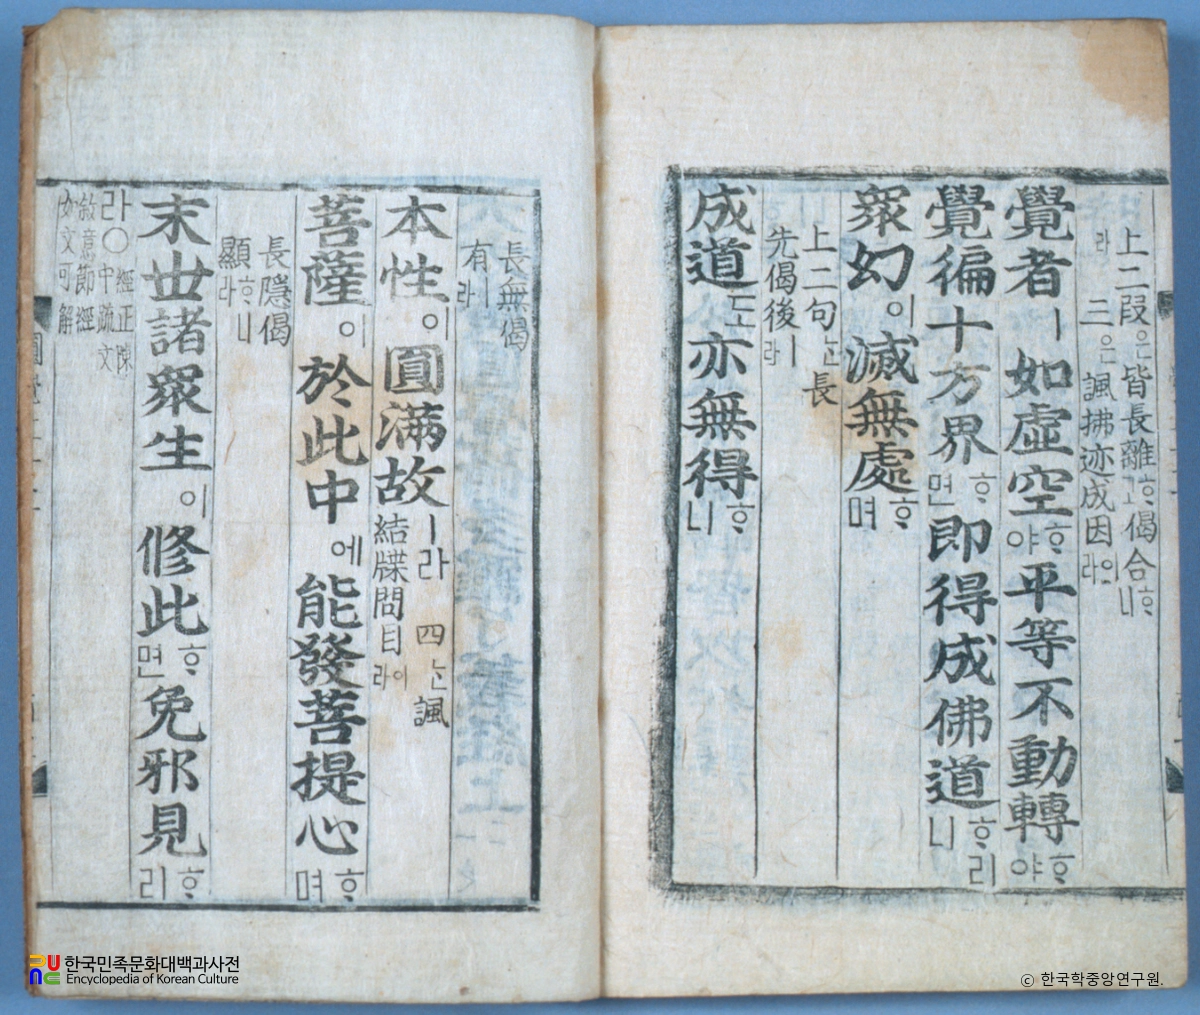 上二叚은皆長離ᄒᆞ고偈合ᄒᆞ니
라 三은諷拂迹成因이라
覺者ㅣ如虛空ᄒᆞ야平等不動轉ᄒᆞ야
覺徧十方界ᄒᆞ면即得成佛道ᄒᆞ리니
衆幻이滅無處ᄒᆞ며
上二句ᄂᆞᆫ長
先偈後ㅣ라
成道도亦無得ᄒᆞ니
長無偈
有ㅣ라
本性이圓滿故ㅣ라 四ᄂᆞᆫ諷
結牒問目이라
菩薩이於此中에能發菩提心ᄒᆞ며
長隱偈
顯ᄒᆞ니라
末丗諸衆生이修此ᄒᆞ면免邪見ᄒᆞ리
라○經正陳
中疏文
敘意節經
如文可解
한국민족문화대백과사전
Encyclopedia of Korean Culture
ⓒ 한국학중앙연구원.